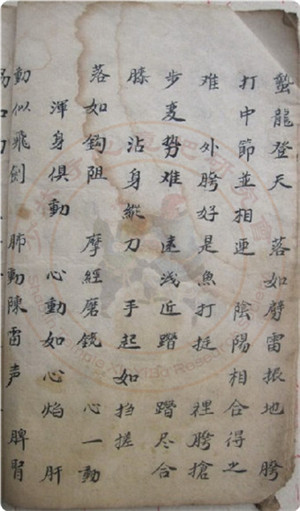 蟄龍登天 落如劈雷振地 胯
打中節並相連 陰陽相合得之
難 外胯好是魚打挺 裡胯搶
步変势难 遠浅近踏 踏尽合
膝 沾身縱刀 手起如挡搓
落如钩阻 摩經磨鋭 心一動
渾身俱動 心動如心焰 肝
動似飛劍 肺動陳雷声 脾腎